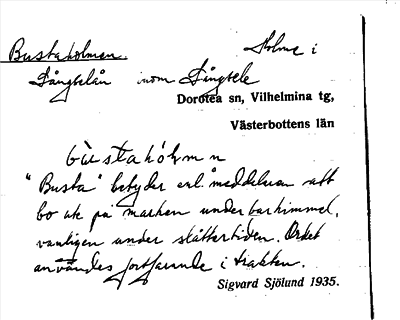 Bustaholmen. Holme i
Långselån inom Långsele
Dorotea sn, Vilhelmina tg,
Västerbottens län
bùstahòlmn
"Busta" betyder enl. meddelaren att
bo ute på marken under bar himmel,
vanligen under slåttertiden. Ordet
användes fortfarande i trakten.
Sigvard Sjölund 1935.